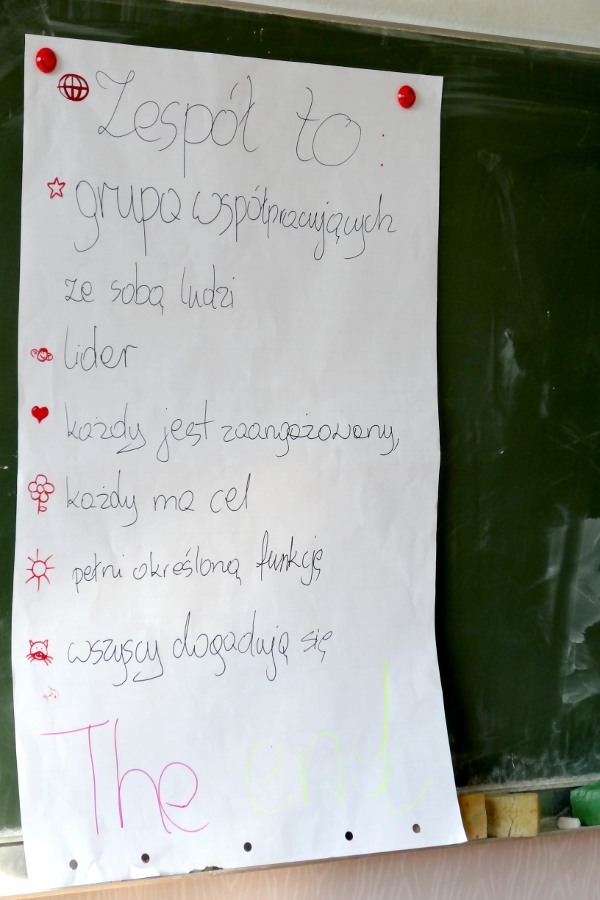 Zespół to:
grupa współpracujących
ze sobą ludzi
lider
każdy jest zaangażowany,
każdy ma cel
pełni określoną funkcję
wszyscy dogadują się
The end